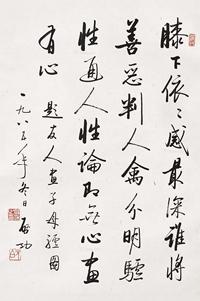 膝下依〻感最深誰將
善惡判人禽分明驢
性通人性論即無心畫
有心
題友人畫子母驢圖
一九八五年冬日啟功